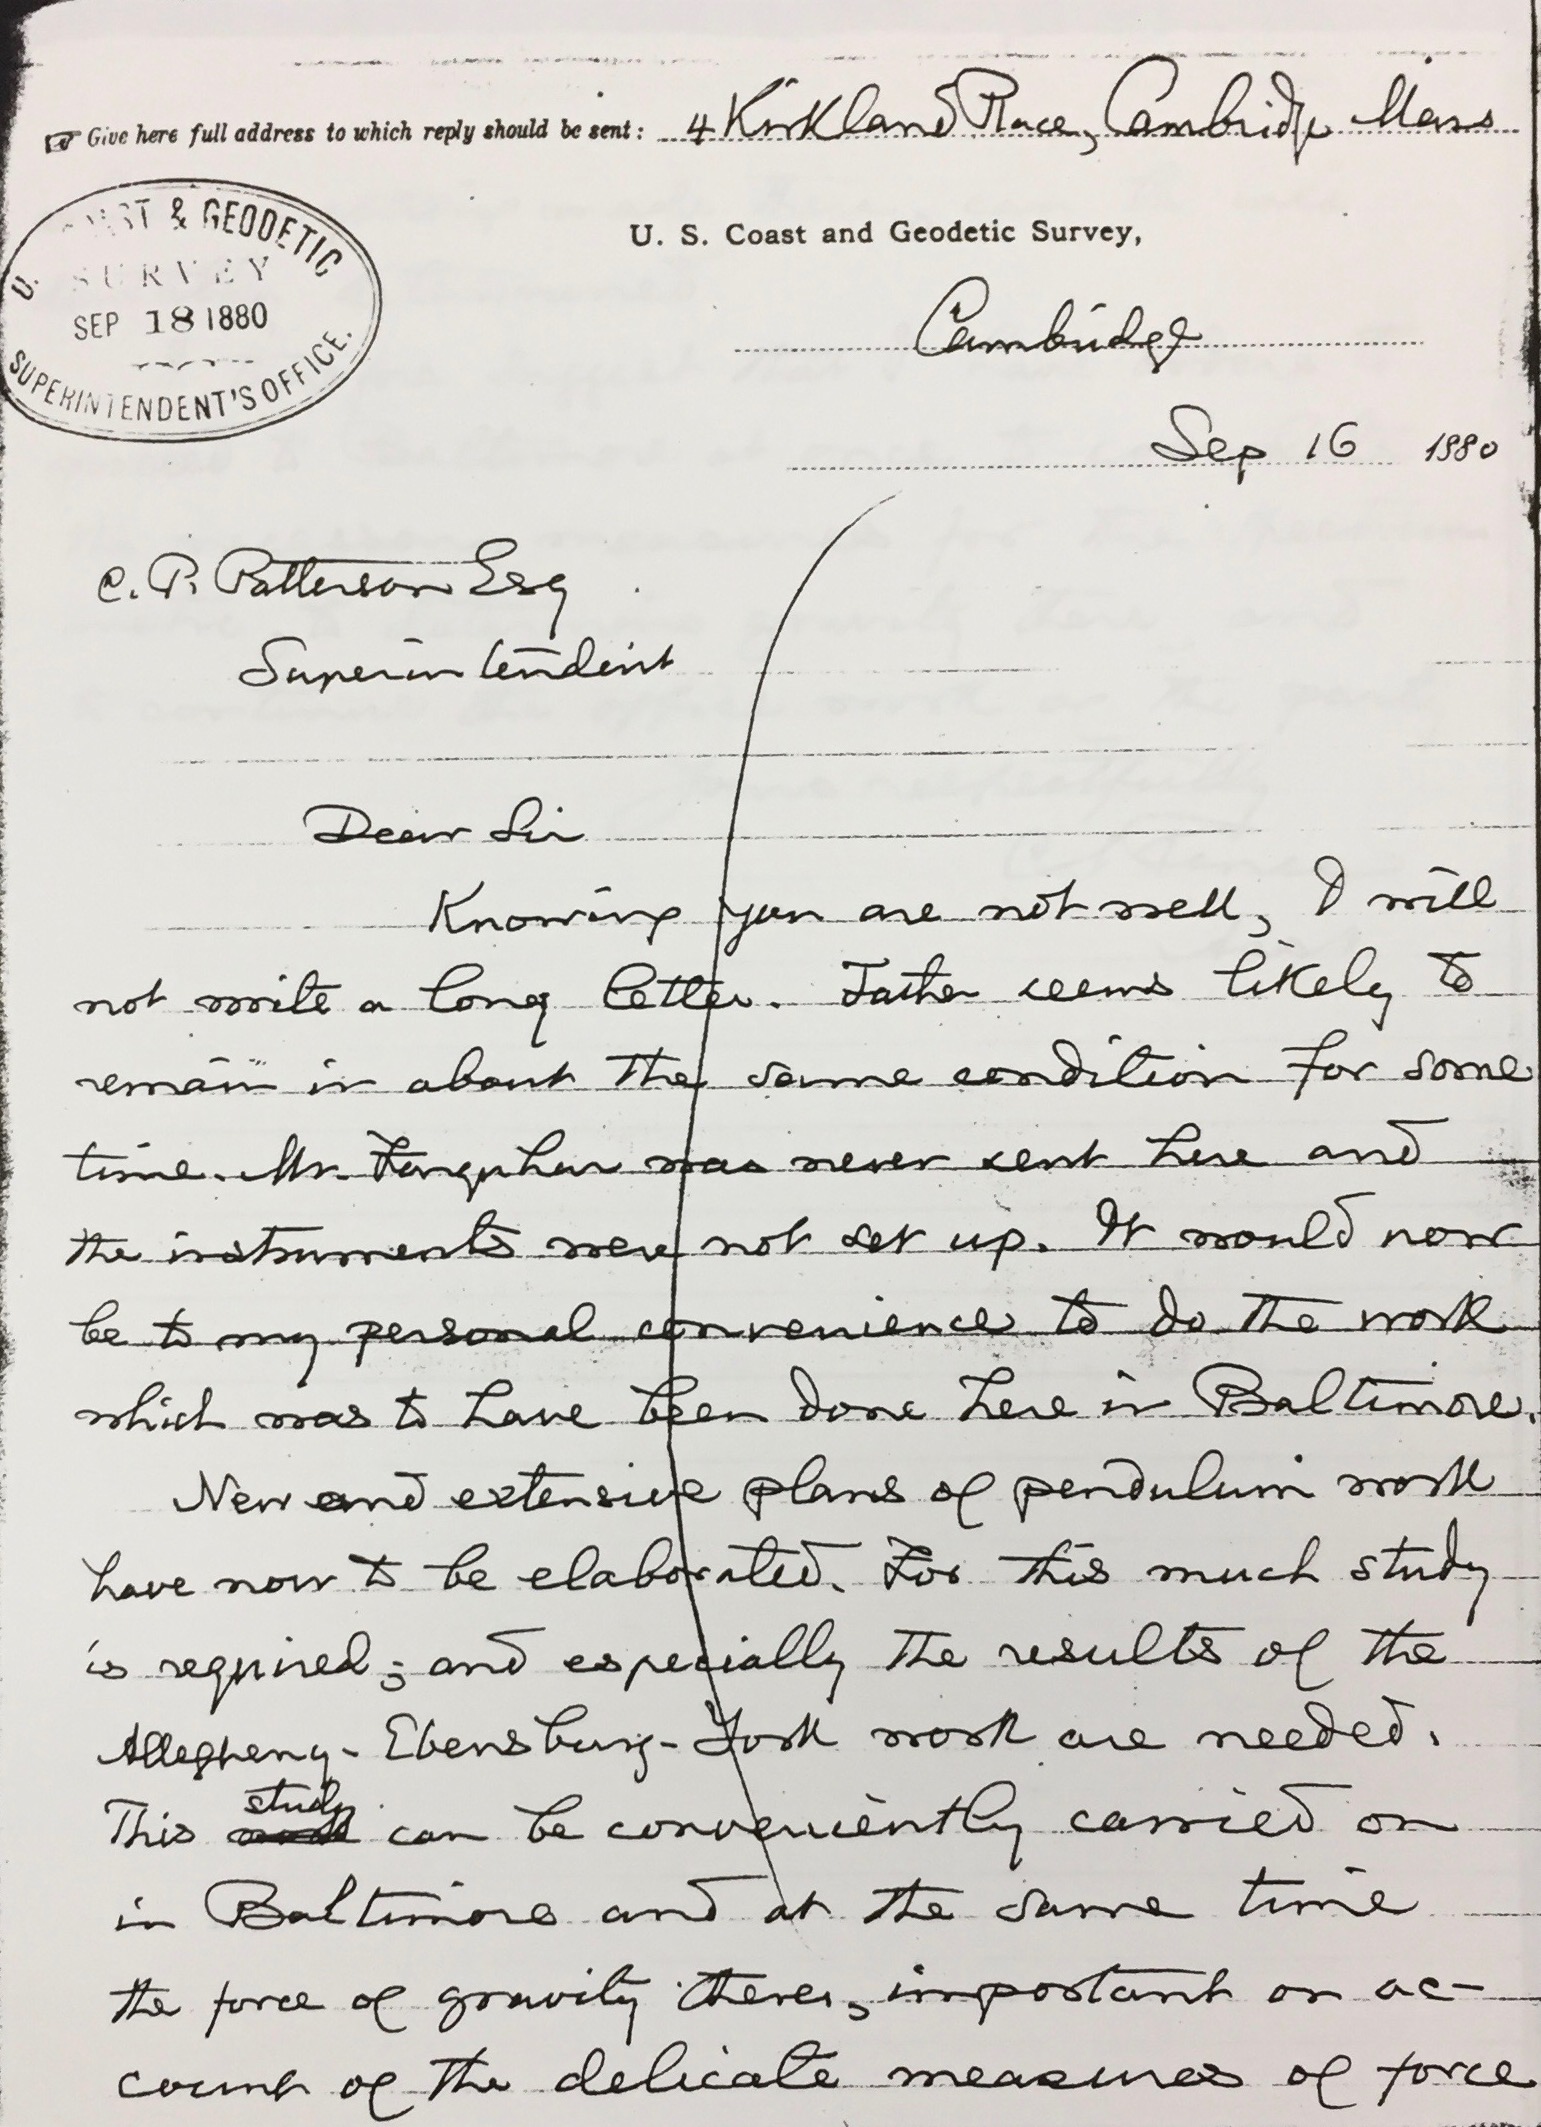 Give here full address to which reply should be sent: 4 Kirkland Place, Cambridge Mass
U. S. Coast and Geodetic Survey,
U. COAST & GEODETIC
SURVEY
SEP 18 1880
SUPERINTENDENT'S OFFICE.
Cambridge
Sep 16 1880
C. P. Patterson Esq
Superintendent
Dear Sir
Knowing you are not well, I will
not write a long letter. Father seems likely to
remain in about the same condition for some
time. Mr. Farquhar was never sent here and
the instruments were not set up. It would now
be to my personal convenience to do the work
which was to have been done here in Baltimore.
New and extensive plans of pendulum work
have now to be elaborated. For this much study
is required; and especially the results of the
Allegheny-Ebensburg-York work are needed.
This study can be conveniently carried on
in Baltimore and at the same time
the force of gravity there, important on ac-
count of the delicate measures of force